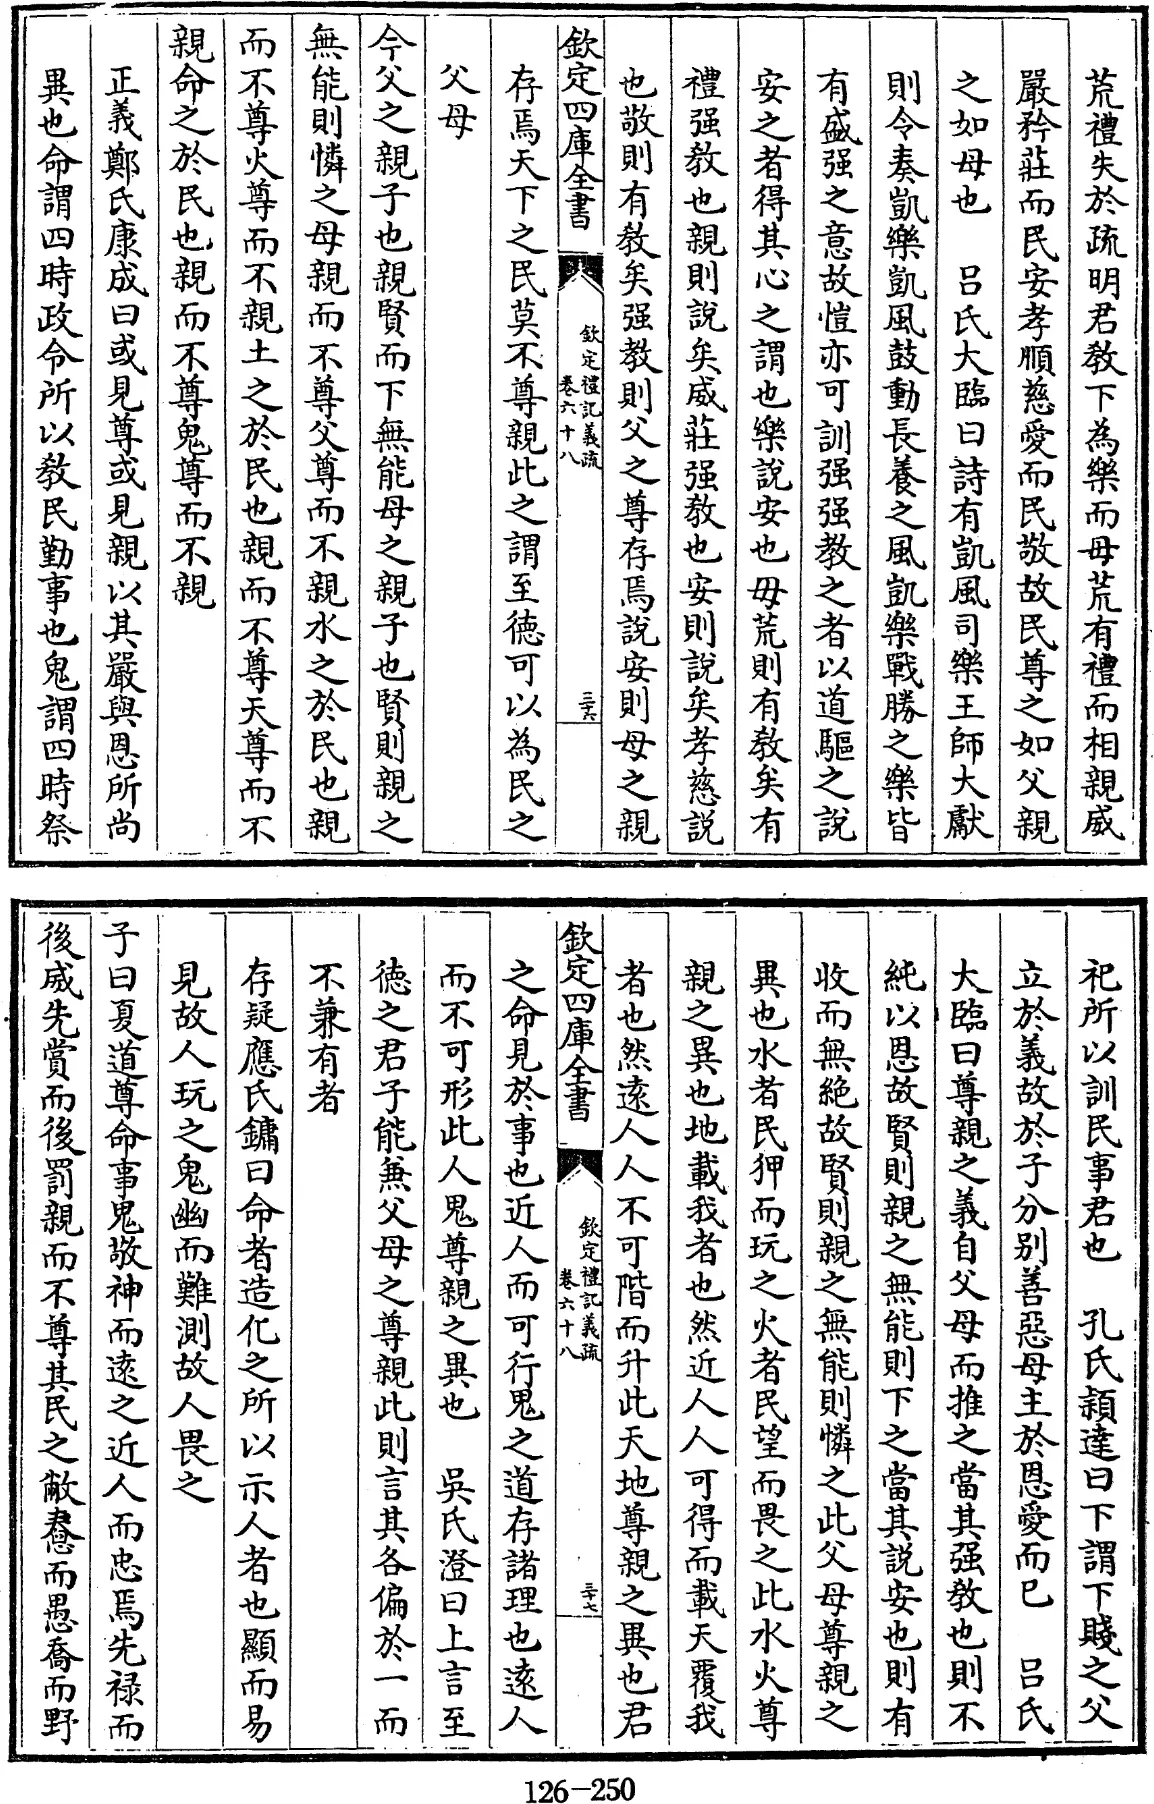 荒禮失於疏明君敎下為樂而毋荒有禮而相親威
嚴矜莊而民安孝順慈愛而民敬故民尊之如父親
之如母也　呂氏大臨曰詩有凱風司樂王師大獻
則令奏凱樂凱風鼓動長養之風凱樂戰勝之樂皆
有盛强之意故愷亦可訓强强教之者以道驅之說
安之者得其心之謂也樂說安也毋荒則有敎矣有
禮强敎也親則說矣威莊强敎也安則說矣孝慈說
也敬則有敎矣强教則父之尊存焉說安則母之親
欽定四庫全書
欽定禮記義疏
卷六十八
三十六
存焉天下之民莫不尊親此之謂至德可以為民之
父母
今父之親子也親賢而下無能母之親子也賢則親之
無能則憐之母親而不尊父尊而不親水之於民也親
而不尊火尊而不親土之於民也親而不尊天尊而不
親命之於民也親而不尊鬼尊而不親
正義鄭氏康成曰或見尊或見親以其嚴與恩所尚
異也命謂四時政令所以敎民勤事也鬼謂四時祭
祀所以訓民事君也　孔氏穎達曰下謂下賤之父
立於義故於子分别善惡母主於恩愛而已　呂氏
大臨曰尊親之義自父母而推之當其强敎也則不
純以恩故賢則親之無能則下之當其說安也則有
收而無絶故賢則親之無能則憐之此父母尊親之
異也水者民狎而玩之火者民望而畏之此水火尊
親之異也地載我者也然近人人可得而載天覆我
者也然逺人人不可階而升此天地尊親之異也君
欽定四庫全書
欽定禮記義疏
卷六十八
三十七
之命見於事也近人而可行鬼之道存諸理也逺人
而不可形此人鬼尊親之異也　吳氏澄曰上言至
德之君子能兼父母之尊親此則言其各偏於一而
不兼有者
存疑應氏鏞曰命者造化之所以示人者也顯而易
見故人玩之鬼幽而難測故人畏之
子曰夏道尊命事鬼敬神而逺之近人而忠焉先禄而
後威先賞而後罰親而不尊其民之敝惷而愚喬而野
126-250